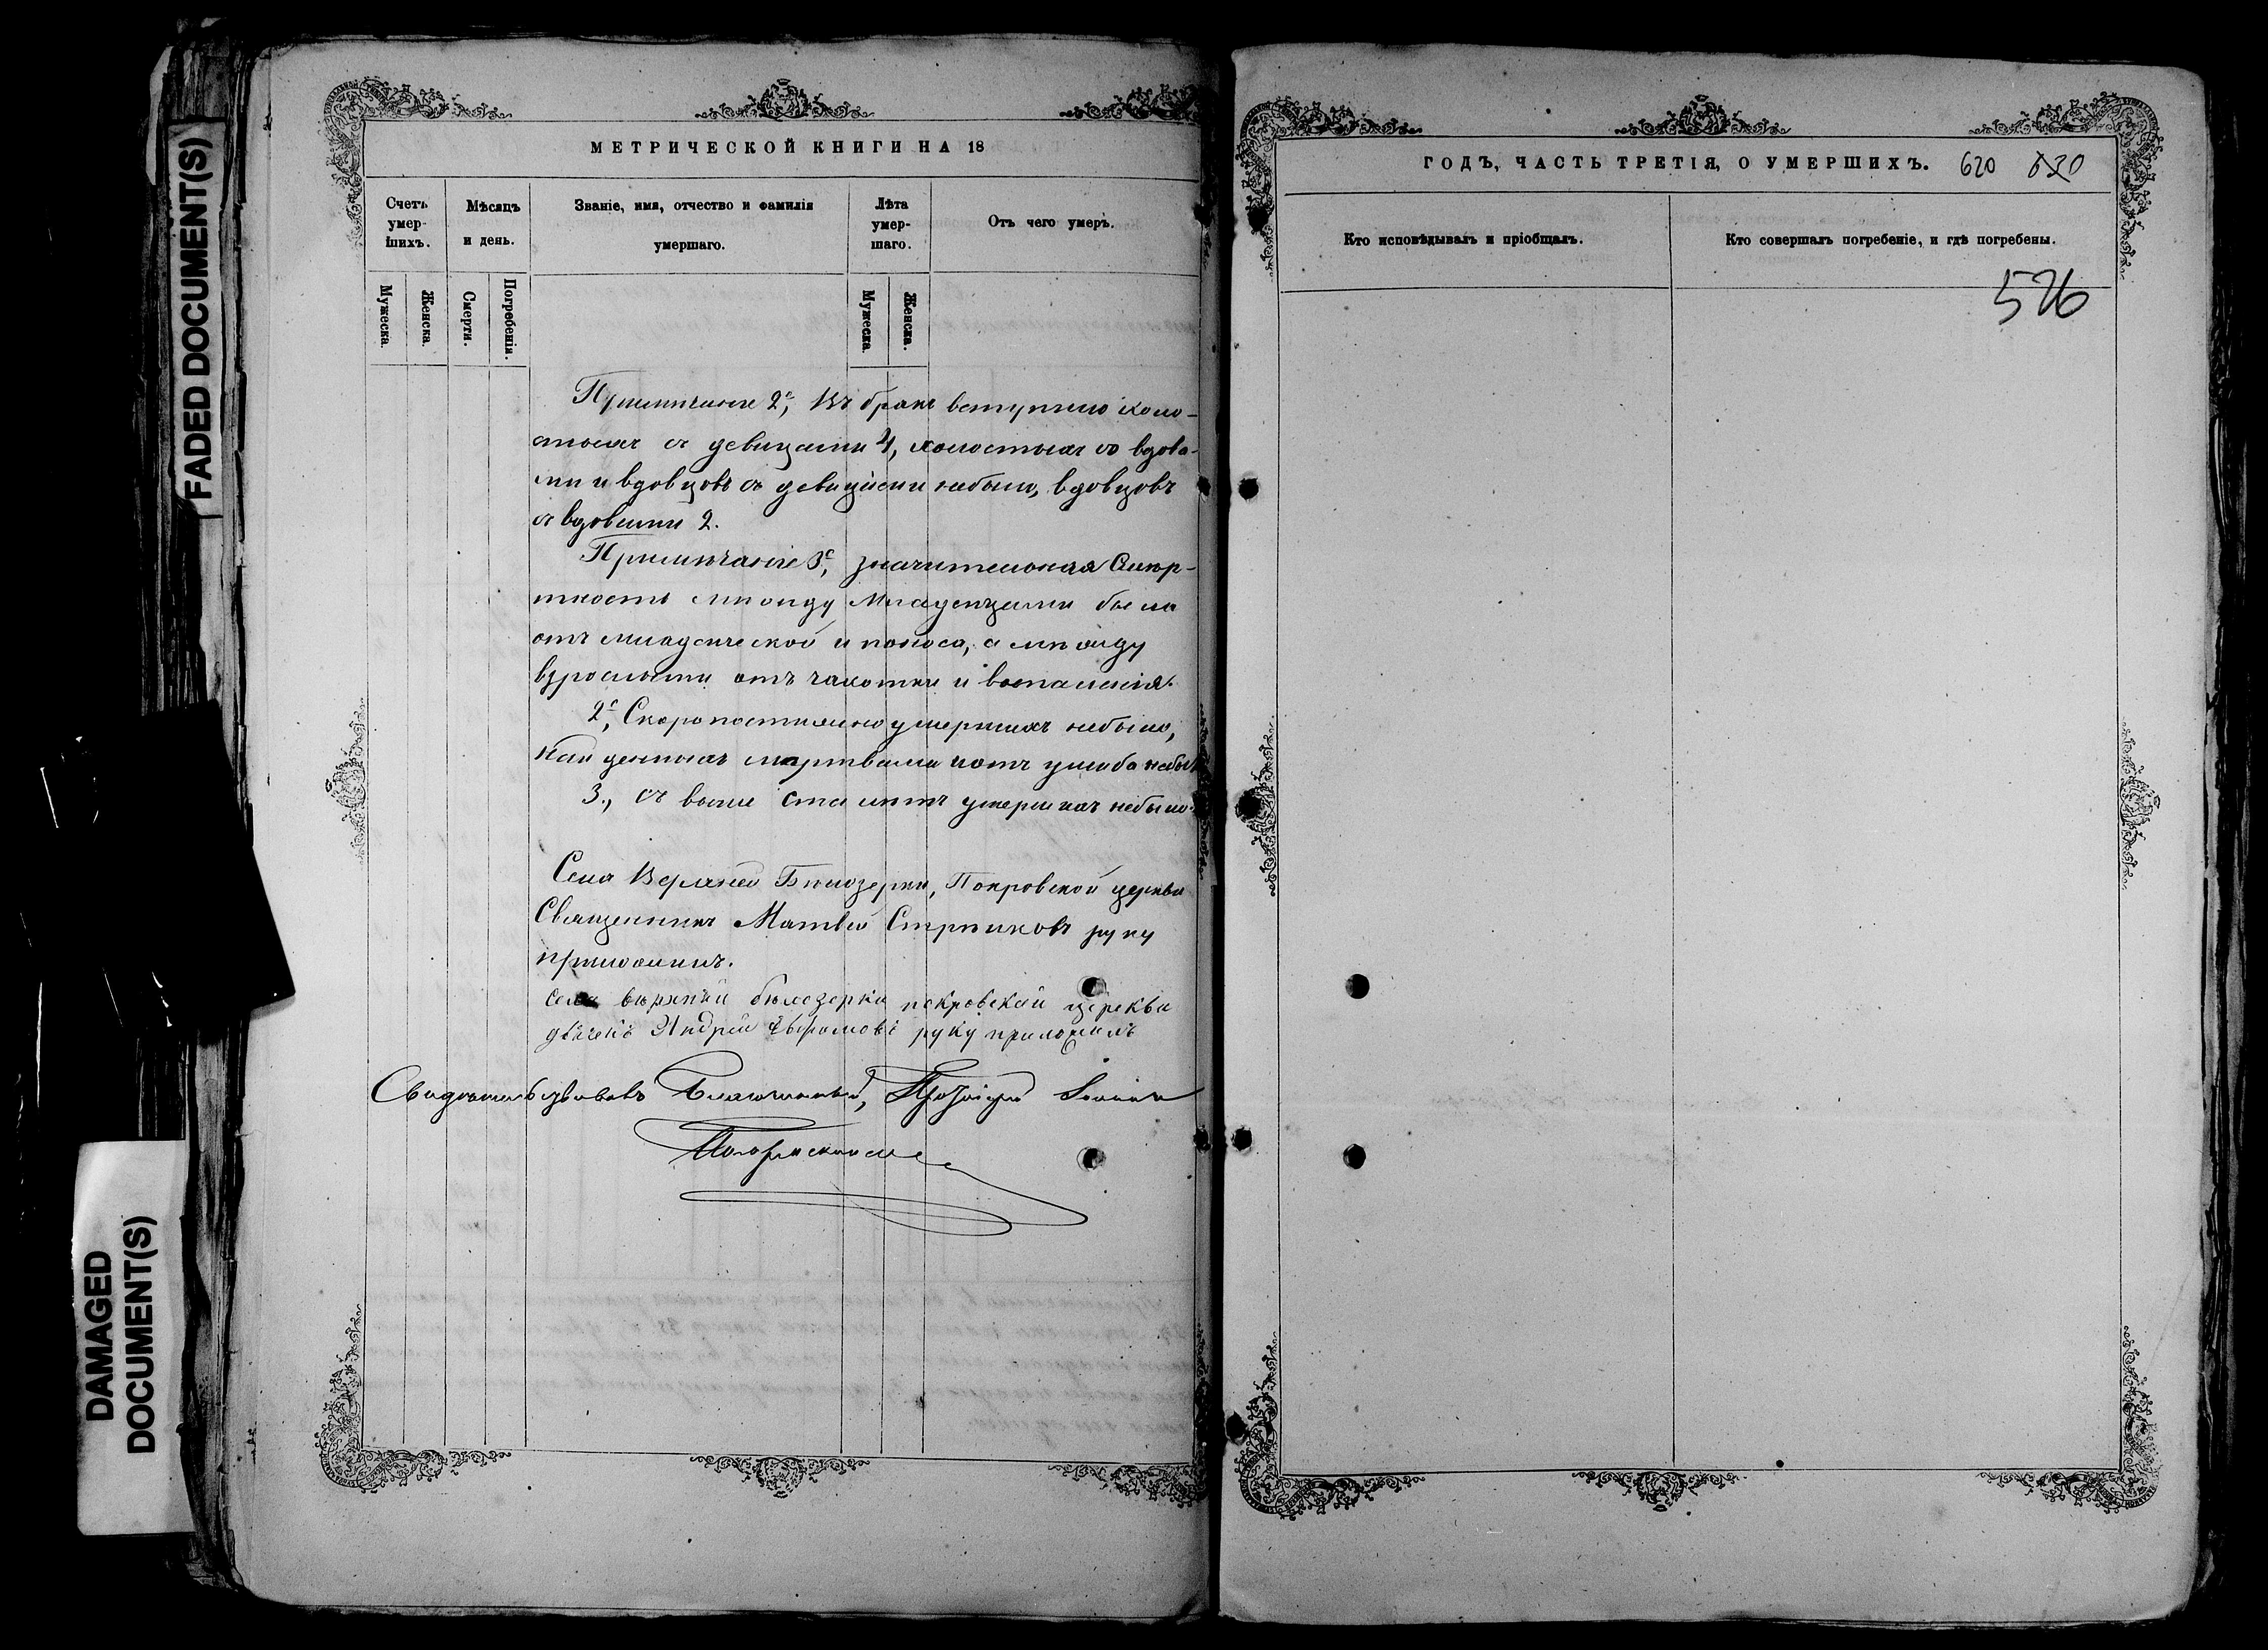 FADED DOCUMENT(S)
DAMAGED
DOCUMENT(S)
МЕТРИЧЕСКОЙ КНИГИ НА 18
Счетъ умер-шихъ.
Мѣсяцъ и день.
Званіе, имя, отчество и фамилія умершаго.
Лѣта умер-шаго.
Отъ чего умеръ.
Мужеска.
Женска.
Смерти.
Погребенія.
Мужеска.
Женска.
Примѣчаніе 2е, Въ бракъ вступило холо-
стыхъ съ девицами 4, холостыхъ со вдова-
ми и вдовцовъ съ девицами небыло, вдовцовъ
съ вдовами 2.
Примѣчаніе 3е, значительная Смер-
тность между младенцами была
отъ младенческой и поноса, а между
взрослыми отъ чахотки и воспаленія.
2е, Скоропостижно умершихъ небыло,
Найденныхъ мертвыми и отъ ушиба небыло
3., съ выше ста летъ умершихъ небыло.
Села Верхней Бѣлозерки, Покровской церкви
Священникъ Матвей Стрѣлковъ руку
приложилъ.
села верхней бѣлозерки покровской церкви
дьячекъ Андрей руку приложилъ
Свидѣтельствовалъ Благочинный,
ГОДЪ, ЧАСТЬ ТРЕТІЯ, О УМЕРШИХЪ. 620 630
Кто исповѣдывалъ и пріобщалъ.
Кто совершалъ погребеніе, и гдѣ погребены.
526